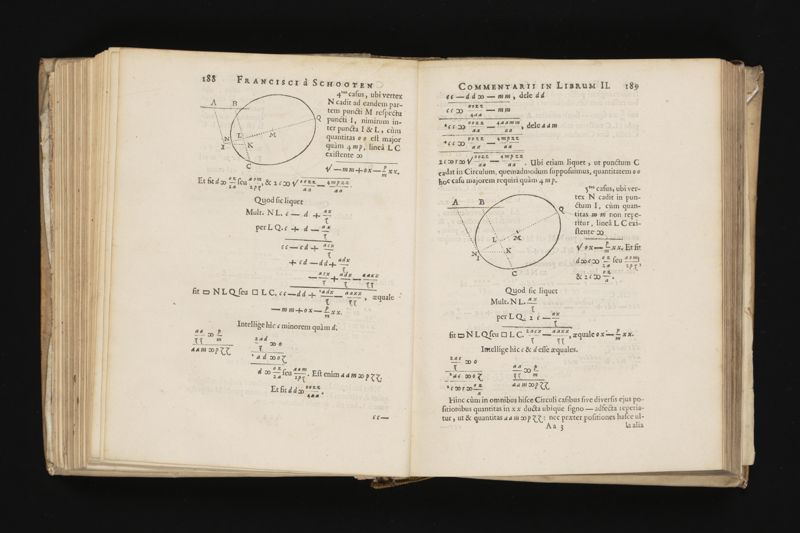 188 FRANCISCI à SCHOOTEN
A B
Q
L M
N
I K
C
4tus casus, ubi vertex
N cadit ad eandem par-
tem puncti M respectu
puncti I, nimirum in-
ter puncta I & L, cùm
quantitas oo est major
quàm 4mp, lineâ LC
existente ∞
√ —mm+ox—p/m xx.
Et sit d∞ oz/2a seu aom/2pζ, & 2c∞√ oozz/aa — 4mpzz/aa.
Quod sic liquet
Mult. NL. c — d + ax/ζ
per LQ. c + d — ax/ζ
cc — cd + acx/ζ
+ cd — dd + adx/ζ
— acx/ζ + adx/ζ — aaxx/ζζ
sit ▭ NLQ seu □ LC. cc — dd + 2adx/ζ — aaxx/ζζ, æquale
— mm + ox — p/m xx.
Intellige hîc c minorem quàm d.
aa/ζζ ∞ p/m
aam ∞ pζζ
2ad/ζ ∞ o
2ad ∞ oζ
d ∞ oz/2a seu aom/2pζ. Est enim aam ∞ pζζ.
Et sit dd ∞ oozz/4aa.
cc—
COMMENTARII IN LIBRUM II. 189
cc — dd ∞ — mm, dele dd
cc ∞ oozz/4aa — mm
4cc ∞ oozz/aa — 4aamm/aa, dele aam
4cc ∞ oozz/aa — 4mpzz/aa
2c ∞ r ∞ √ oozz/aa — 4mpzz/aa. Ubi etiam liquet, ut punctum C
cadat in Circulum, quemadmodum supposuimus, quantitatem oo
hoc casu majorem requiri quàm 4mp.
A B
Q
L M
N K
I
C
5tus casus, ubi ver-
tex N cadit in pun-
ctum I, cùm quan-
titas mm non repe-
ritur, lineâ LC exi-
stente ∞
√ ox — p/m xx. Et sit
d∞c∞ oz/2a seu aom/2pζ,
& 2c∞ oz/a.
Quod sic liquet
Mult. NL. ax/ζ
per LQ. 2c — ax/ζ
sit ▭ NLQ seu □ LC. 2acx/ζ — aaxx/ζζ, æquale ox — p/m xx.
Intellige hîc c & d esse æquales.
2ac/ζ ∞ o
2ac ∞ oζ
2c ∞ r ∞ oz/a
aa/ζζ ∞ p/m
aam ∞ pζζ
Hinc cùm in omnibus hisce Circuli casibus sive diversis ejus po-
sitionibus quantitas in xx ducta ubique signo — adfecta reperia-
tur, ut & quantitas aam ∞ pζζ: nec præter positiones hasce ul-
Aa 3 la alia